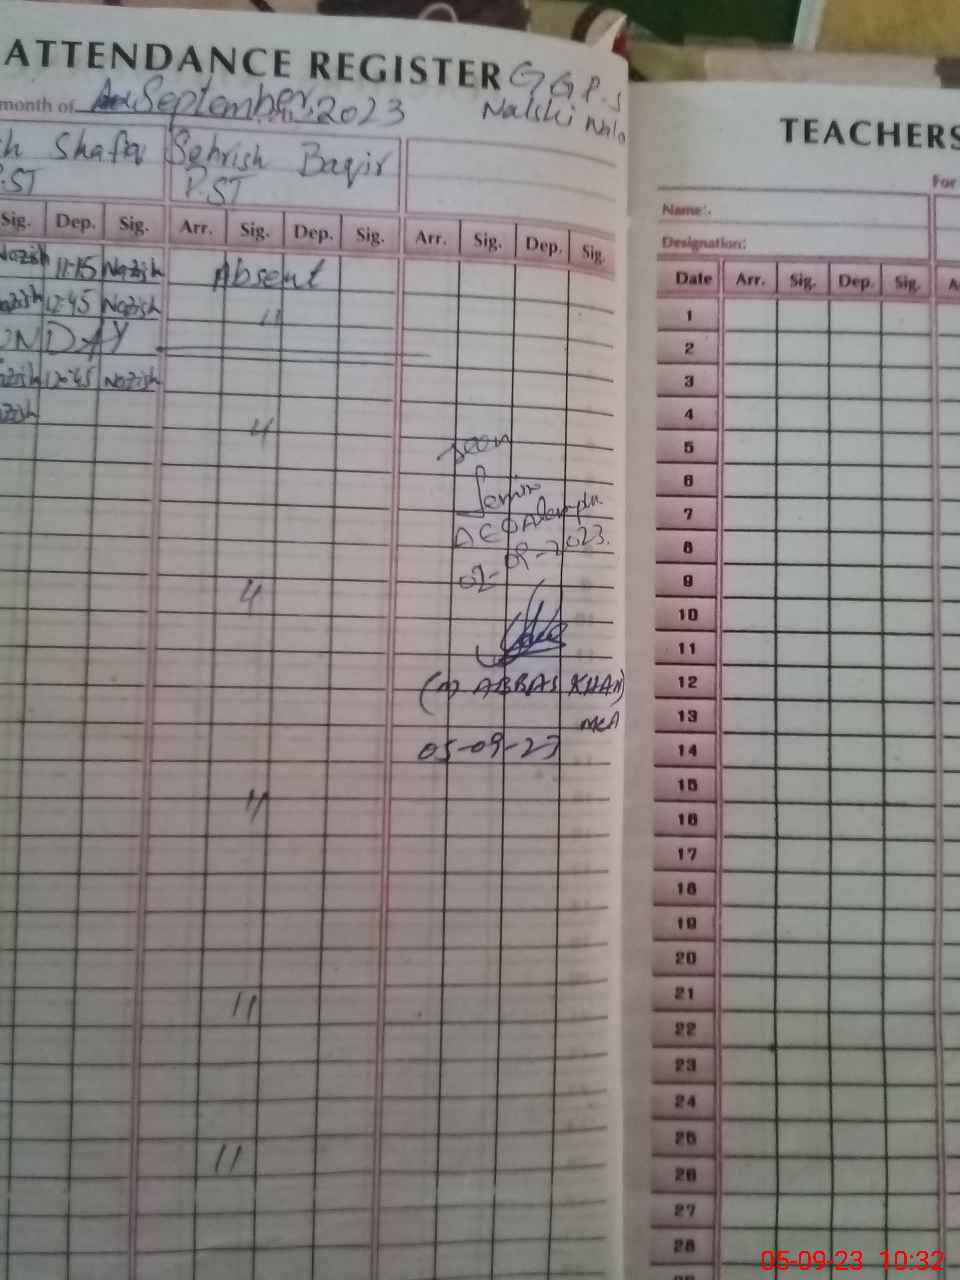 ATTENDANCE REGISTER G G P.S
month of September 2023 Nalski
h Shafa Sehrish Baqir
P.ST P.ST
Sig. Dep. Sig. Arr. Sig. Dep. Sig. Arr. Sig. Dep. Sig.
Nazish 11:15 Nazish Absent
Nazish 12:45 Nazish 11
UNDAY
Nazish 12:45 Nazish
zish
11
Seen
AEO
02-09-2023.
11
(M ABBAS KHAN)
MEA
05-09-23
11
11
11
TEACHERS
For
Name:
Designation:
Date Arr. Sig. Dep. Sig. A
1
2
3
4
5
6
7
8
9
10
11
12
13
14
15
16
17
18
19
20
21
22
23
24
25
26
27
28
05-09-23 10:32